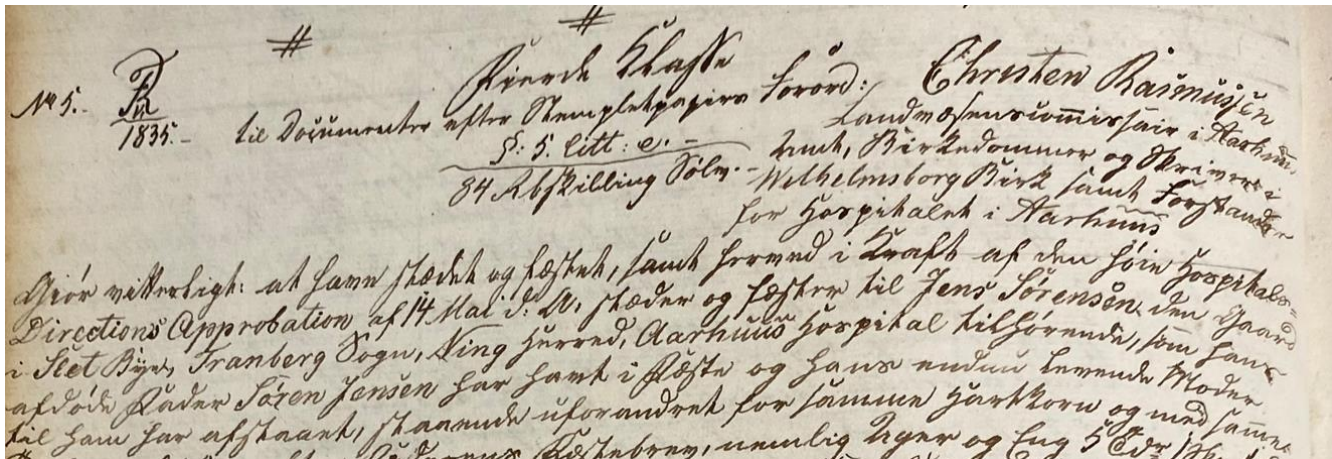 No 5.
1835.
Fierde Klasse
til Documenter efter Stempletpapirs Forord:
§: 5. Litt: e.
84 Rbskilling Sølv.
Christen Rasmussen
Landvæsenscommissair i Aarhuus
Amt, Birkedommer og Skriver i
Wilhelmsborg Birk samt Forstander
for Hospitalet i Aarhuus
Giør vitterligt: at have stædet og fæstet, samt herved i Kraft af den høie Hospitals-
Directions Approbation af 14 Mai d: A, stæder og fæster til Jens Sørensen den Gaard
i Slet Bye, Tranberg Sogn, Ning Herred, Aarhuus Hospital tilhørende, som hans
afdøde Fader Søren Jensen har havt i Fæste og hans endnu levende Moder
til ham har afstaaet, staaende uforandret for samme Hartkorn og med samme
Fæstebrev, nemlig Ager og Eng 5 Tdr